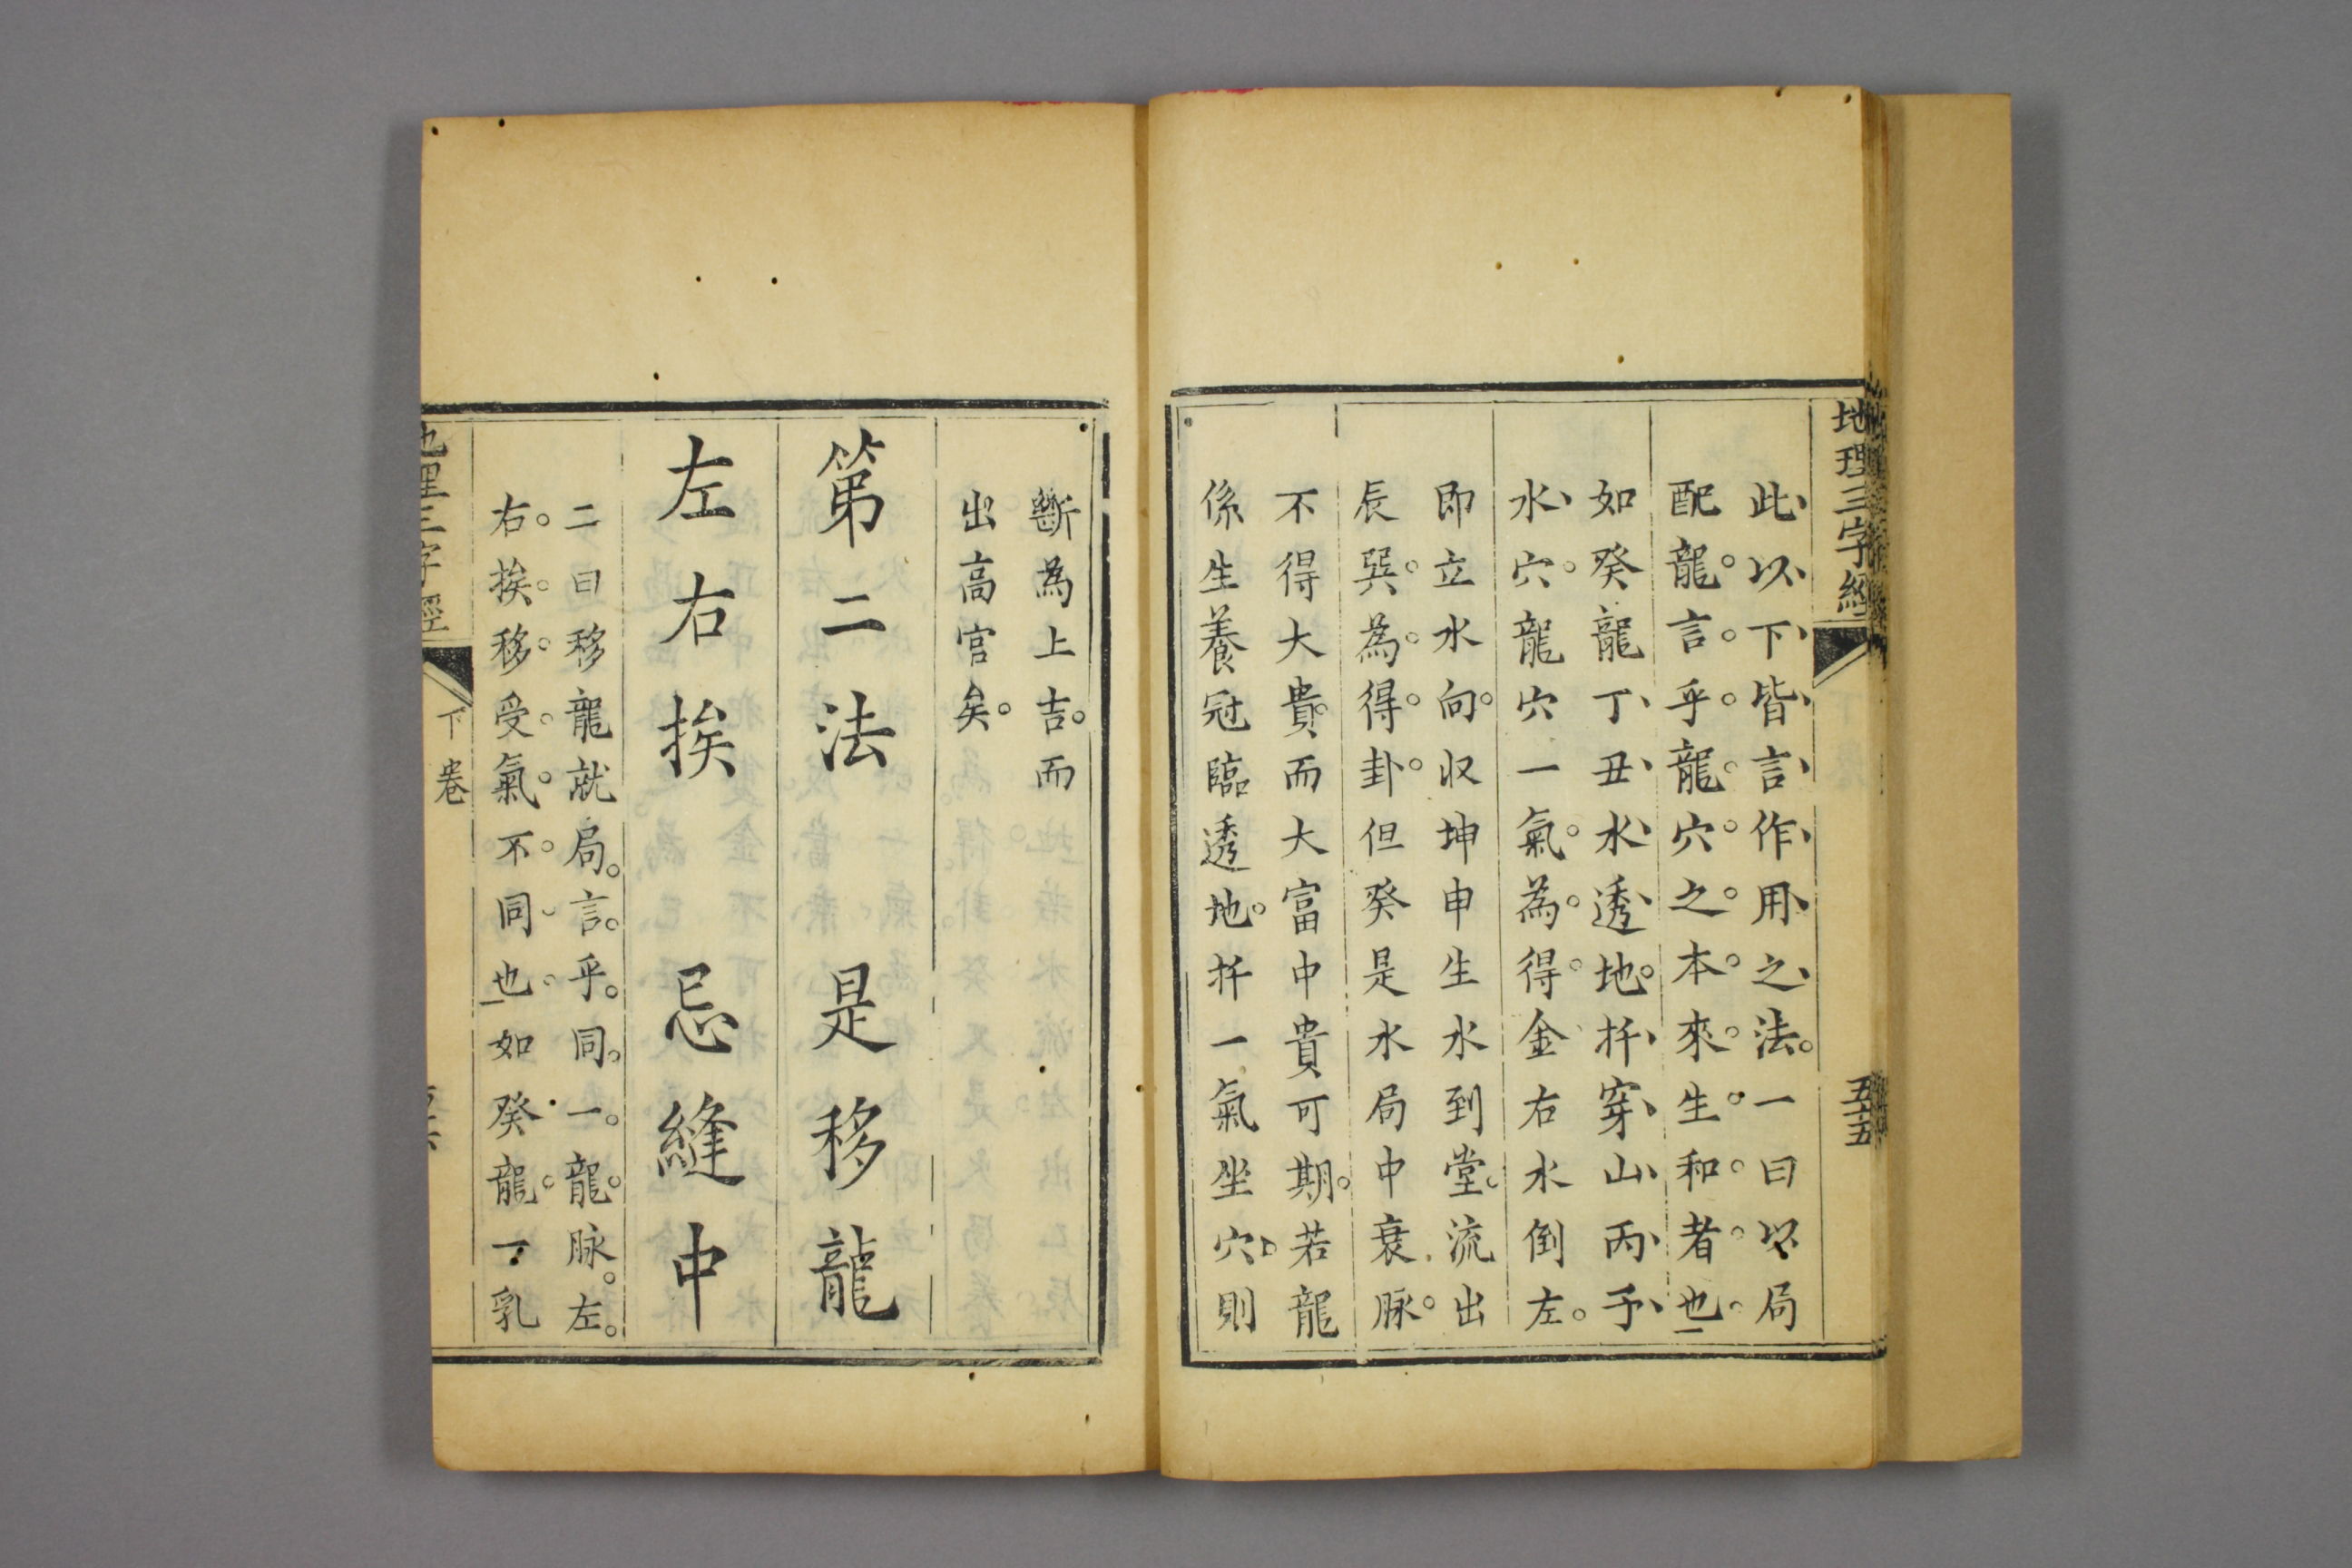 地理三字經
五十五
此以下皆言作用之法。一曰以局
配龍。言乎龍穴之本來生和者也
如癸龍丁丑水透地。扦穿山丙子
水穴。穴龍穴一氣。為得金右水倒左。
即立水向。收坤申生水到堂。流出
辰巽。為得卦。但癸是水局中衰脉。
不得大貴。而大富中貴可期。若龍
係生養冠臨透地。扦一氣坐穴。則
斷為上吉。而
出高官矣。
第二法 是移龍
左右挨 忌縫中
二曰移龍就局。言乎同一龍脉。左
右挨移。受氣不同也如癸龍一乳
地理三字經
下卷